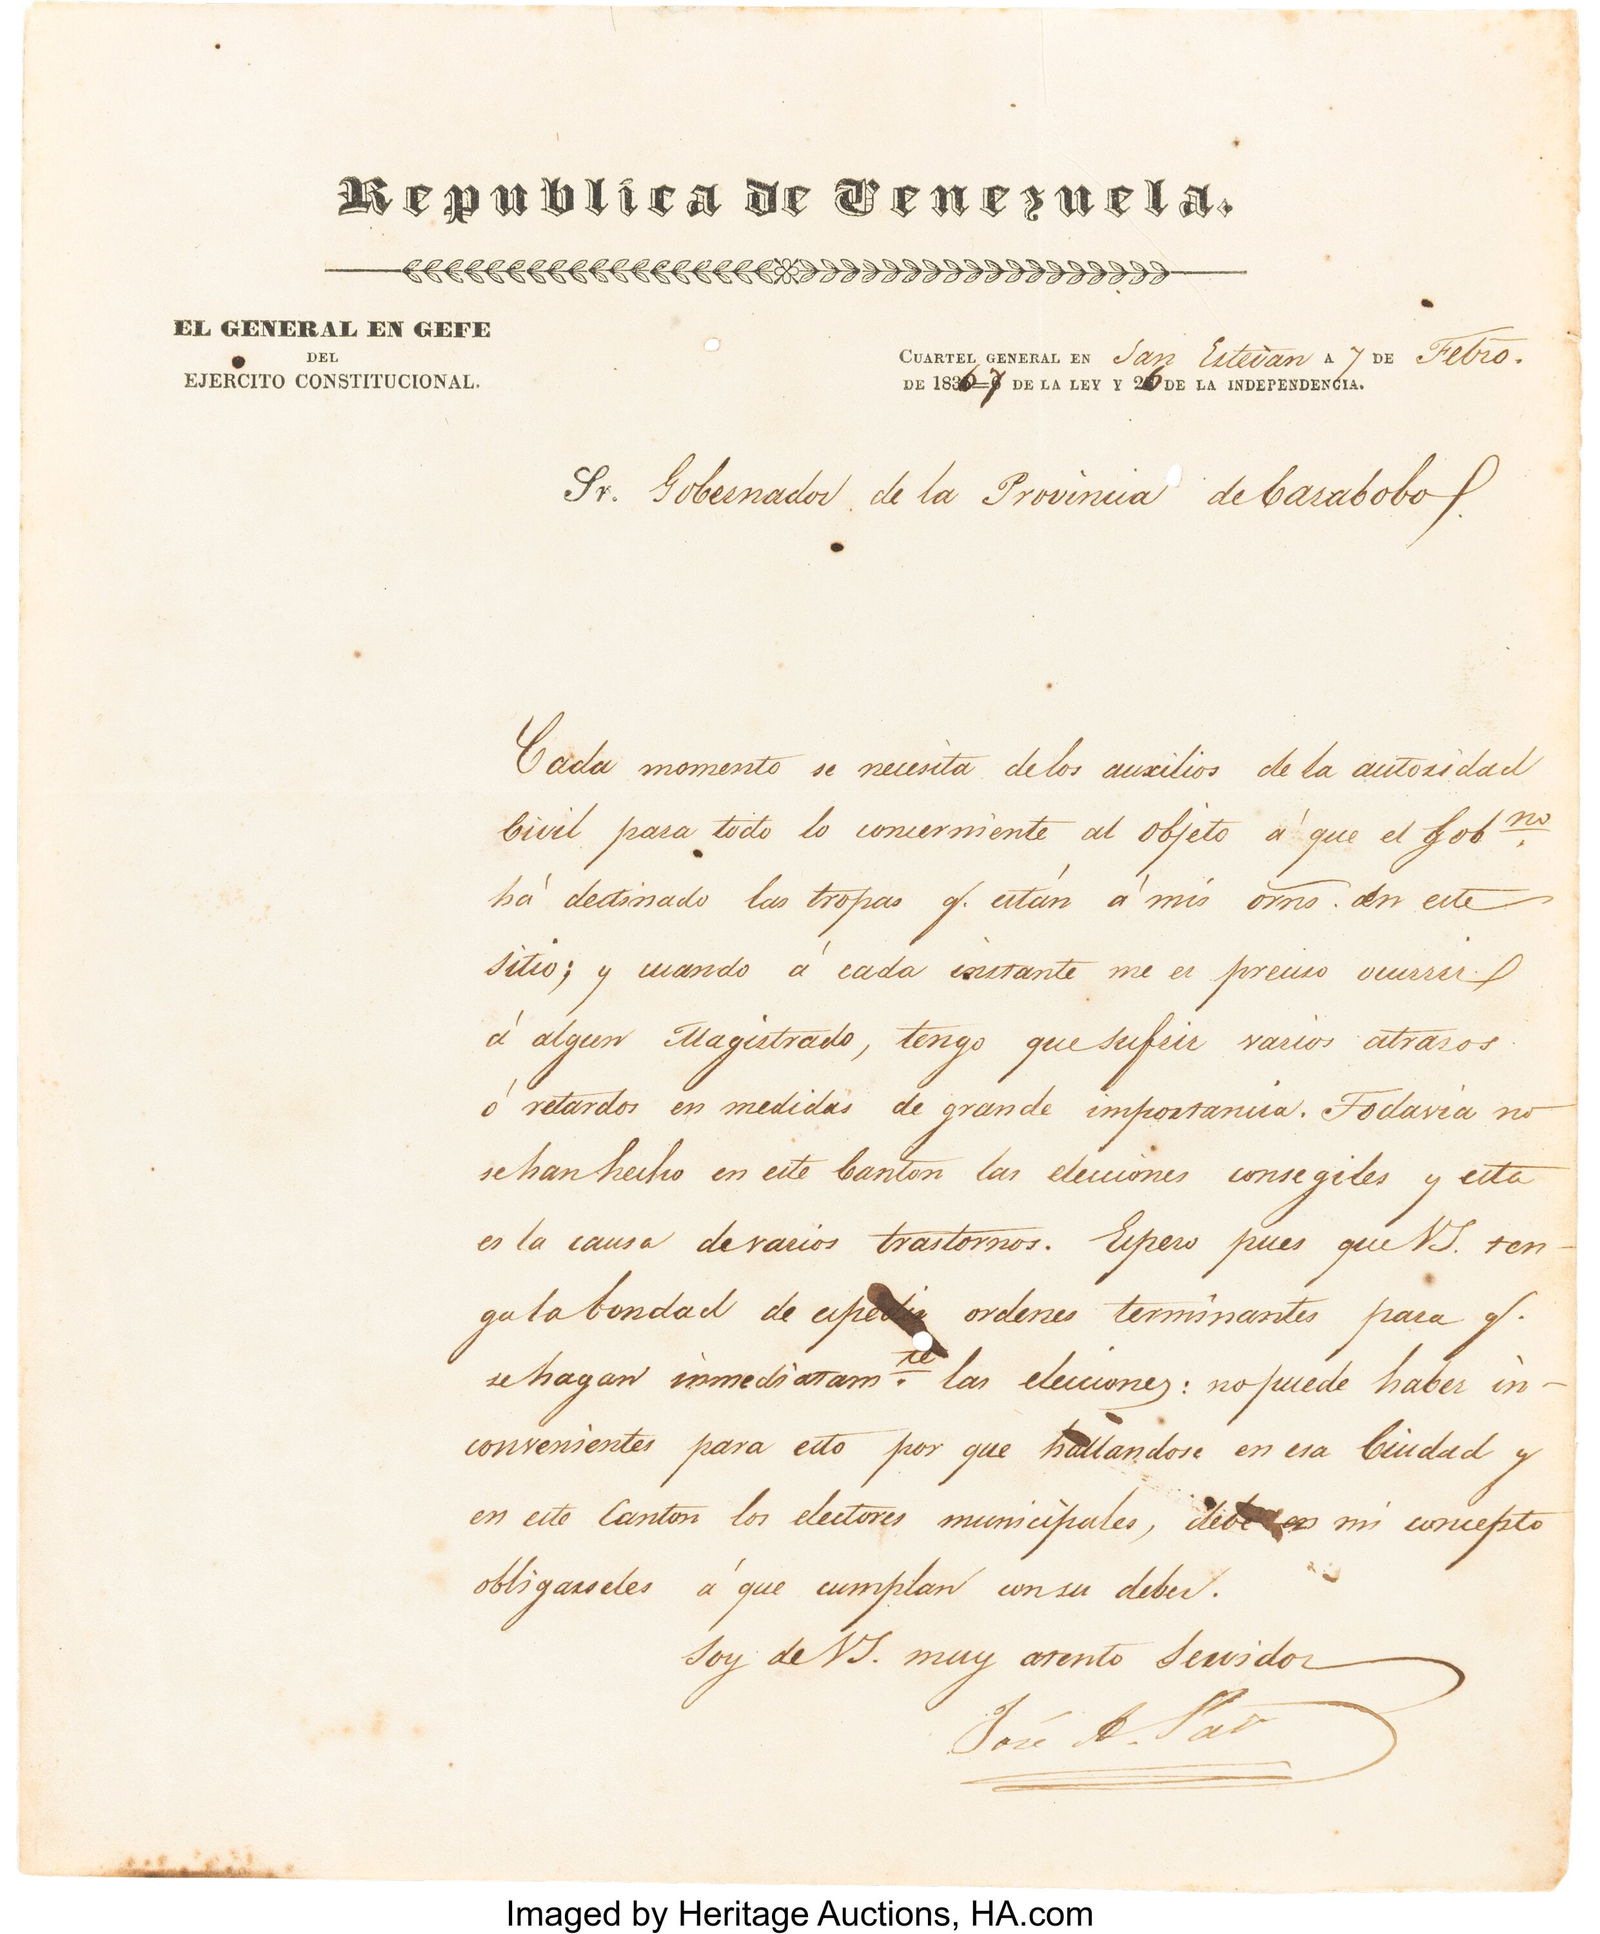 Republica de Venezuela.
EL GENERAL EN GEFE
DEL
EJERCITO CONSTITUCIONAL.
CUARTEL GENERAL EN San Estevan A 7 DE Febro.
DE 1836=7 DE LA LEY Y 26 DE LA INDEPENDENCIA.
Sr. Gobernador de la Provincia de Carabobo
Cada momento se necesita delos auxilios de la autoridad
Civil para todo lo concerniente al objeto á que el Gobno.
há destinado las tropas q. están á mis orns. en este
sitio; y cuando á cada instante me es preciso ocurrir
á algun Magistrado, tengo que sufrir varios atrasos
ó retardos en medidas de grande importancia. Todavia no
se han hecho en este Canton las elecciones consegiles y esta
es la causa de varios trastornos. Espero pues que VS. ten-
ga la bondad de espedir ordenes terminantes para q.
se hagan inmediatamte. las elecciones: no puede haber in-
convenientes para esto por que hallandose en esa Ciudad y
en este Canton los electores municipales, debe en mi concepto
obligarseles á que cumplan con su deber.
Soy de VS. muy atento Servidor
José A. Páez
Imaged by Heritage Auctions, HA.com